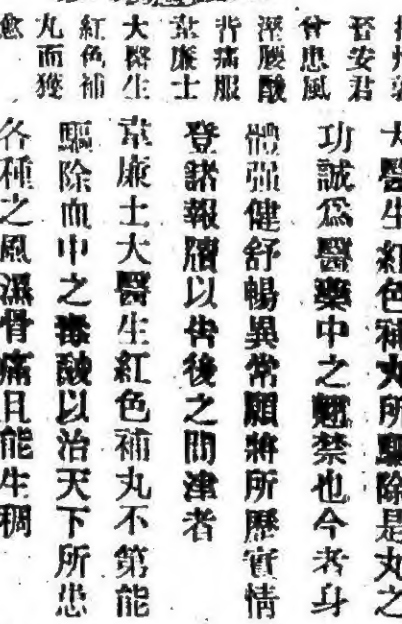 州
晉安君
曾患風
溼腰酸
背痛服
韋廉士
大醫生
紅色補
丸而獲
愈
大醫生紅色補丸所驅除是丸之
功誠爲醫藥中之翹楚也今者身
體强健舒暢異常願將所歷實情
登諸報牘以告後之問津者
韋廉士大醫生紅色補丸不第能
驅除血中之毒酸以治天下所患
各種之風濕骨痛且能生稠